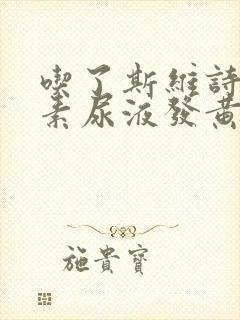 喫了斯維詩
素尿液發黃
施貴寶